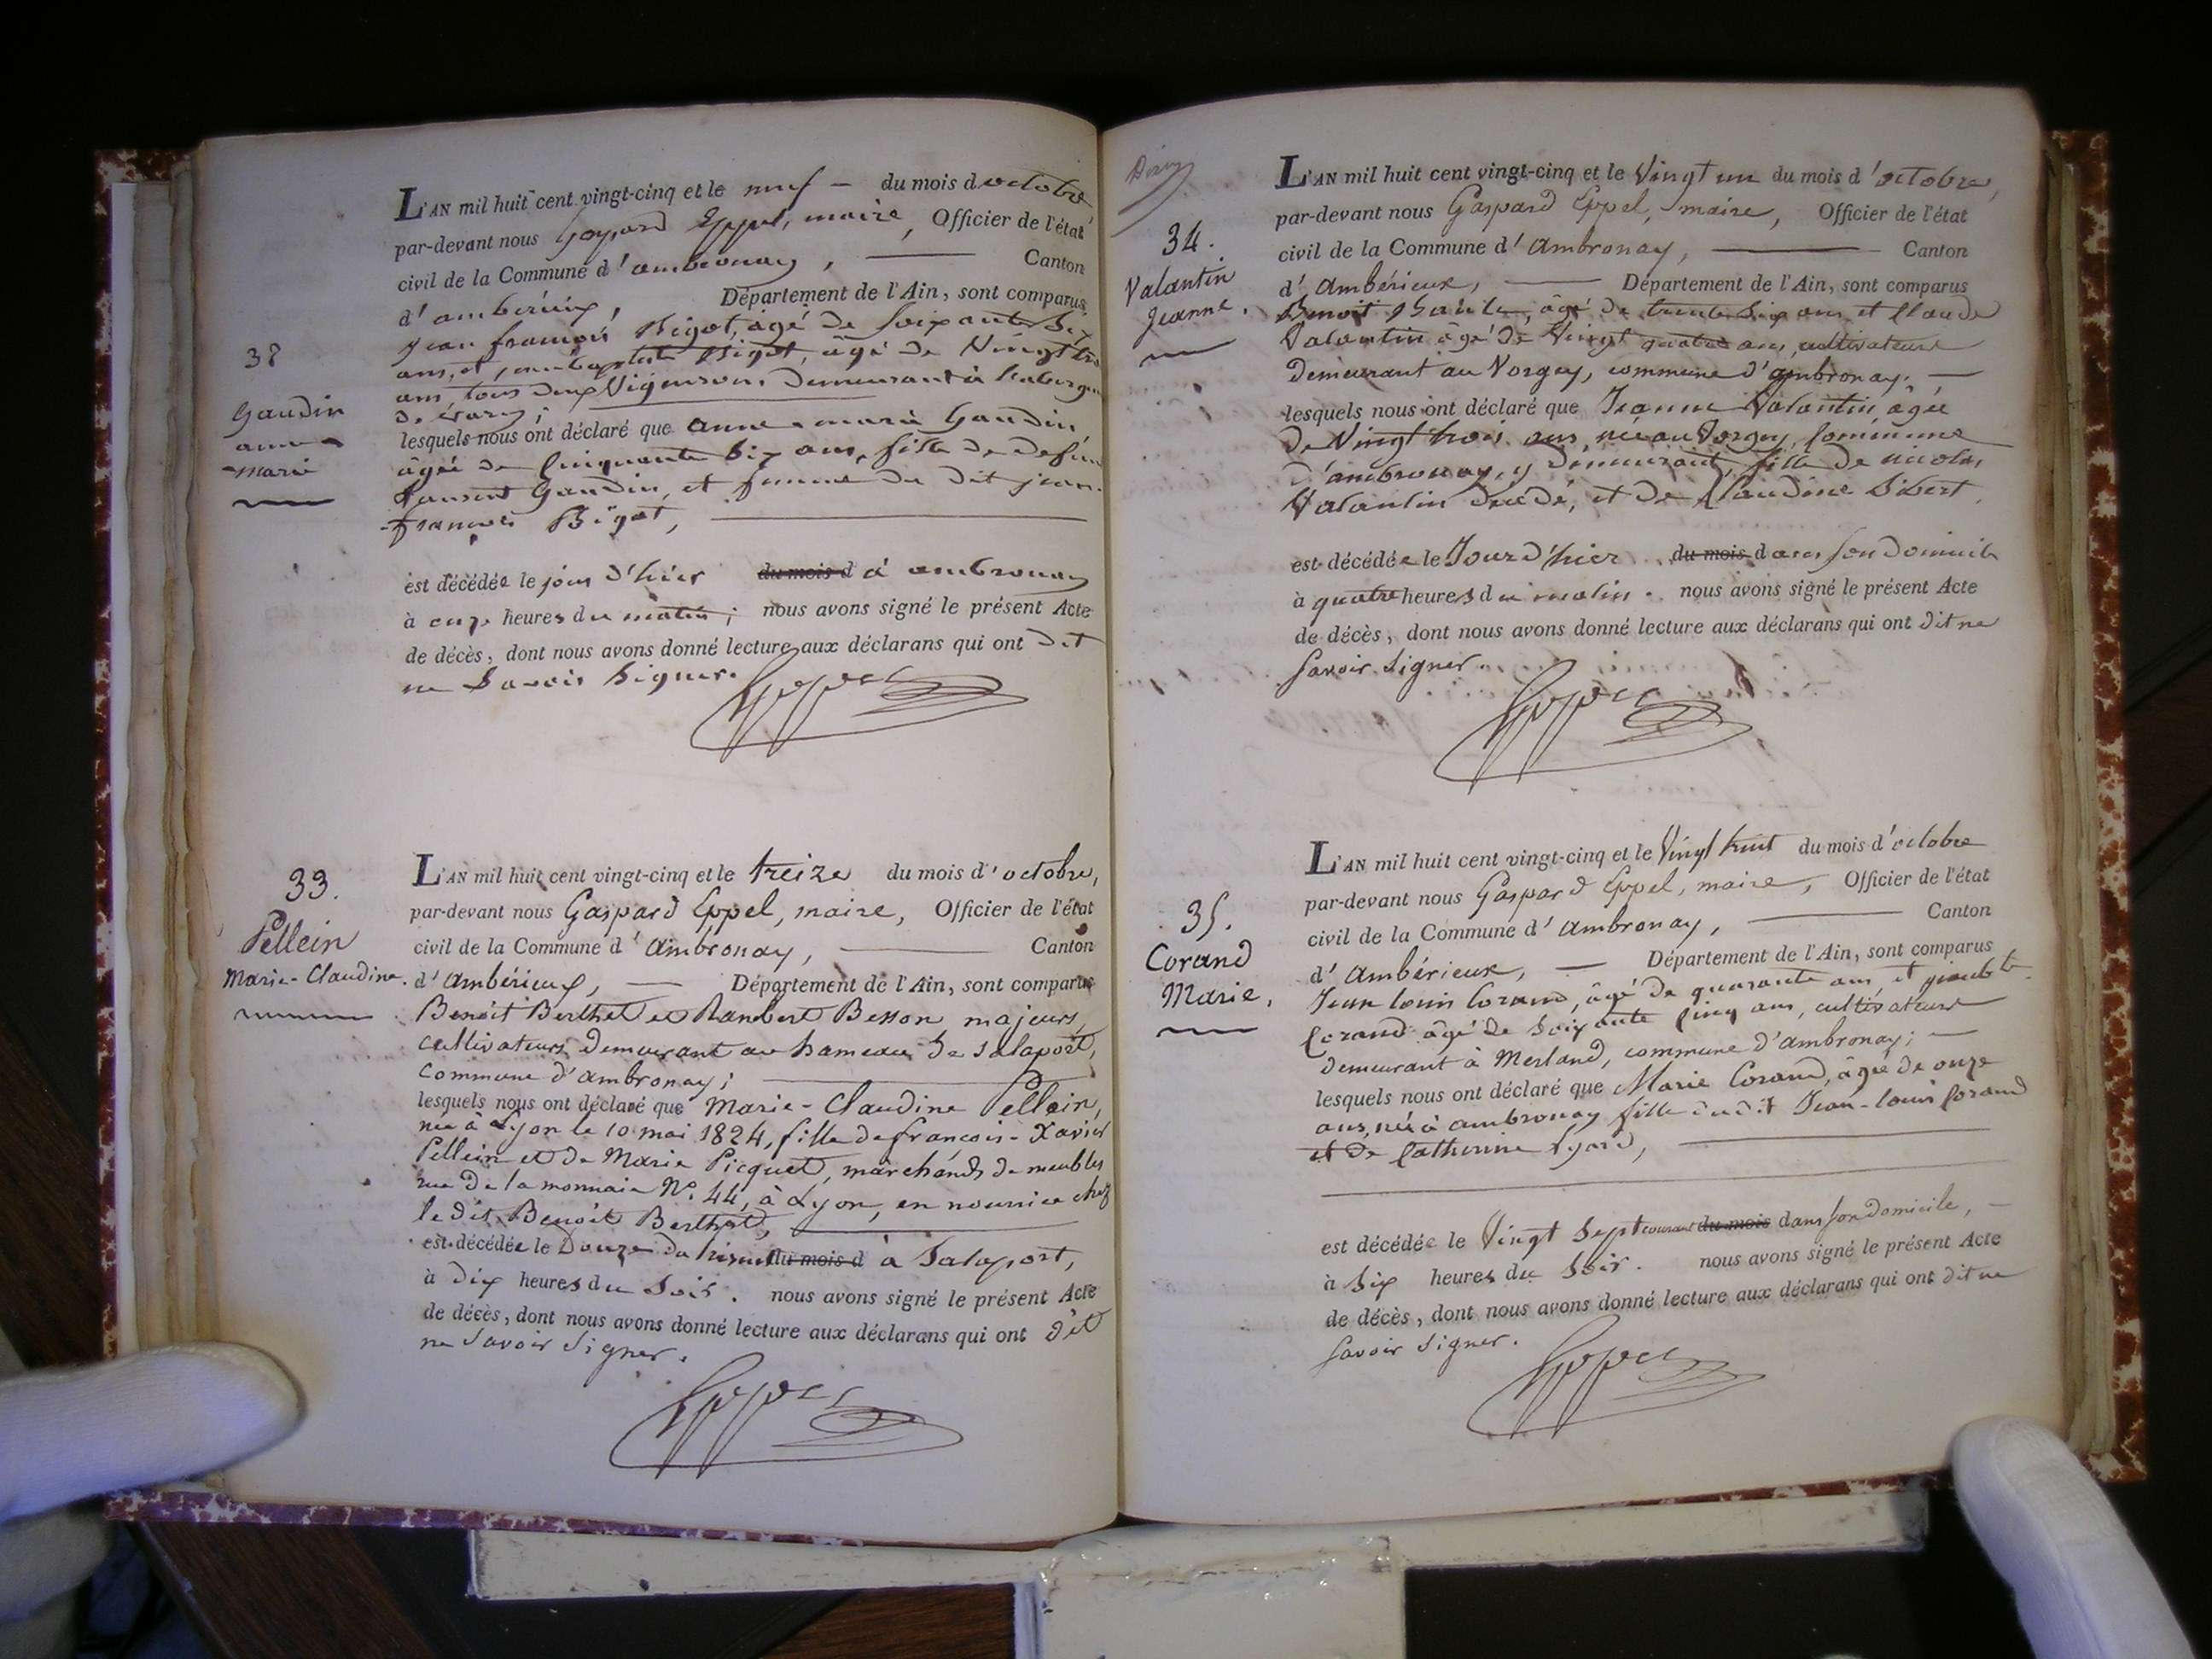 38
Gaudin
anne
marie
L'AN mil huit cent vingt-cinq et le neuf du mois d'octobre,
par-devant nous Gaspard Eppel, maire, Officier de l'état
civil de la Commune d'ambronay, Canton
d'amberieux, Département de l'Ain, sont comparus
jean françois Bigot, âgé de soixante six
ans, et jean baptiste Bigot, âgé de Vingt
ans, tous deux Vignerons demeurant à
lesquels nous ont déclaré que anne marie Gaudin
âgée de cinquante six ans, fille de defunt
Laurent Gaudin, et femme du dit jean
françois Bigot,
est décédée le jour d'hier du mois d à ambronay
à onze heures du matin; nous avons signé le présent Acte
de décès, dont nous avons donné lecture aux déclarans qui ont dit
ne Savoir Signer.
Eppel
33.
Pellein
Marie-Claudine.
L'AN mil huit cent vingt-cinq et le treize du mois d'octobre,
par-devant nous Gaspard Eppel, maire, Officier de l'état
civil de la Commune d'Ambronay, Canton
d'Ambérieux, Département de l'Ain, sont comparus
Benoit Berthet et Rambert Besson, majeurs,
cultivateurs demeurant au hameau de Salaport,
commune d'ambronay;
lesquels nous ont déclaré que Marie-Claudine Pellein,
née à Lyon le 10 mai 1824, fille de françois-Xavier
Pellein et de Marie Picquet, marchands de meubles
rue de la monnaie No. 44, à Lyon, en nourrice chez
le dit Benoit Berthet,
est décédée le Douze du présent du mois d à Salaport,
à dix heures du Soir. nous avons signé le présent Acte
de décès, dont nous avons donné lecture aux déclarans qui ont dit
ne Savoir Signer.
Eppel
34.
Valantin
Jeanne.
L'AN mil huit cent vingt-cinq et le Vingt un du mois d'octobre,
par-devant nous Gaspard Eppel, maire, Officier de l'état
civil de la Commune d'Ambronay, Canton
d'Ambérieux, Département de l'Ain, sont comparus
Benoit âgé de trente six ans et Claude
Valantin âgé de Vingt quatre ans, cultivateurs
demeurant au Vorgey, commune d'ambronay;
lesquels nous ont déclaré que Jeanne Valantin âgée
de Vingt trois ans, née au Vorgey, Commune
d'ambronay, y demeurant, fille de nicolas
Valantin décédé, et de Claudine Sibert,
est décédée le Jour d'hier du mois dans son domicile
à quatre heures du matin. nous avons signé le présent Acte
de décès, dont nous avons donné lecture aux déclarans qui ont dit ne
Savoir Signer.
Eppel
35.
Corand
Marie,
L'AN mil huit cent vingt-cinq et le Vingt huit du mois d'octobre
par-devant nous Gaspard Eppel, maire, Officier de l'état
civil de la Commune d'Ambronay, Canton
d'Ambérieux, Département de l'Ain, sont comparus
Jean louis Corand, âgé de quarante ans, et
Corand âgé de Soixante cinq ans, cultivateurs
demeurant à Merland, commune d'ambronay;
lesquels nous ont déclaré que Marie Corand, âgée de onze
ans, née à ambronay fille du dit Jean-louis Corand
et de Catherine Lyard,
est décédée le Vingt Sept courant du mois dans son domicile,
à Six heures du Soir. nous avons signé le présent Acte
de décès, dont nous avons donné lecture aux déclarans qui ont dit ne
Savoir Signer.
Eppel